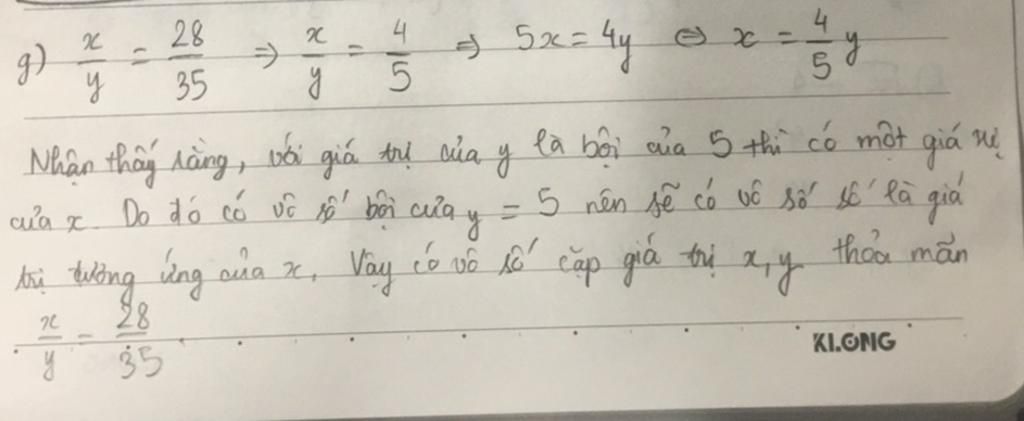 g) x/y = 28/35 ⇒ x/y = 4/5 ⇒ 5x = 4y ⇔ x = 4/5 y
Nhận thấy rằng, với giá trị của y là bội của 5 thì có một giá trị
của x. Do đó có vô số bội của y = 5 nên sẽ có vô số số là giá
trị tương ứng của x. Vậy có vô số cặp giá trị x, y thỏa mãn
x/y = 28/35
KLONG